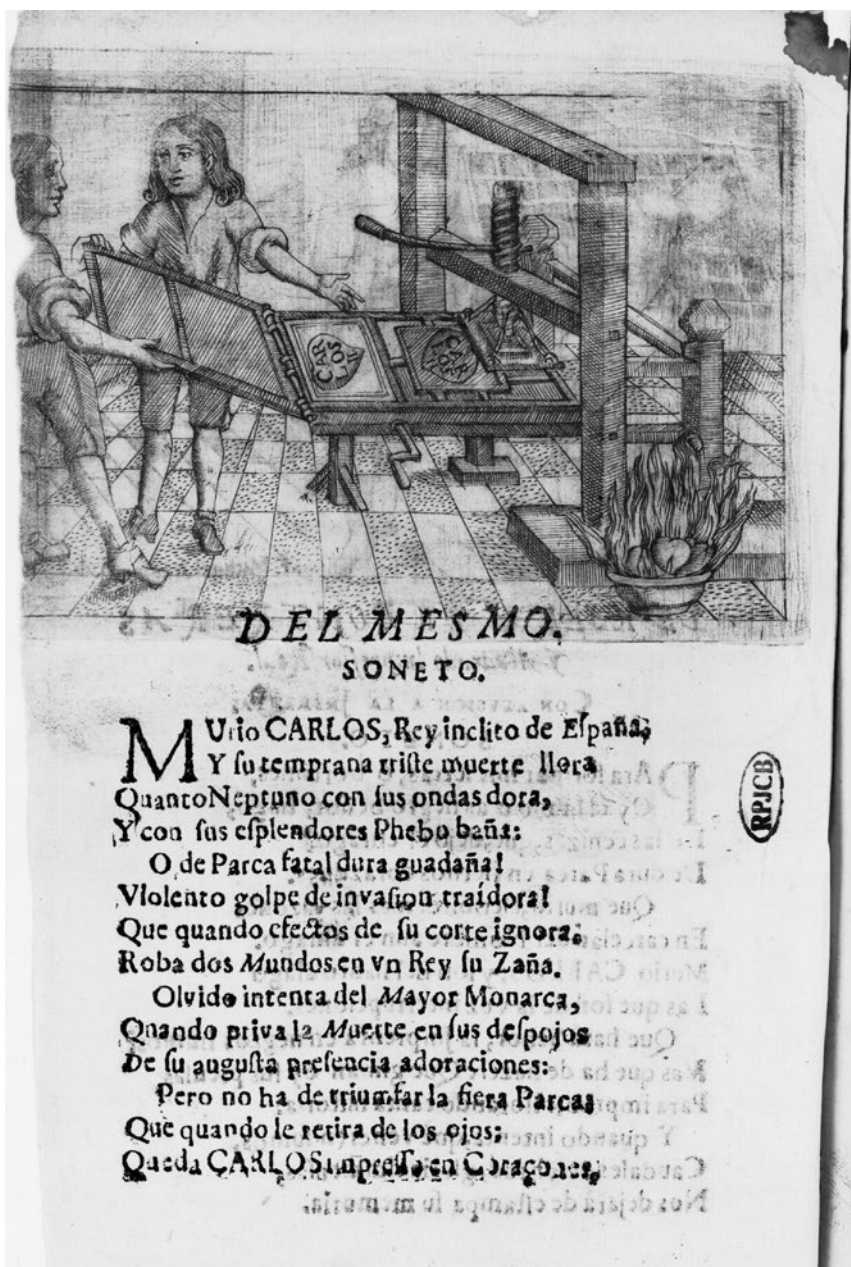 CAR
LOS
II
CAR
LOS
II
DEL MESMO.
SONETO.
MUrio CARLOS, Rey inclito de Eſpaña;
Y ſu temprana triſte muerte llora
Quanto Neptuno con ſus ondas dora,
Y con ſus eſplendores Phebo baña:
O de Parca fatal dura guadaña!
Violento golpe de invaſion traídora!
Que quando efectos de ſu corte ignora;
Roba dos Mundos en vn Rey ſu Zaña.
Olvido intenta del Mayor Monarca,
Quando priva la Muerte en ſus deſpojos
De ſu auguſta preſencia adoraciones:
Pero no ha de triumfar la fiera Parca;
Que quando le retira de los ojos;
Queda CARLOS impreſſo en Coraçones.
RPJCB